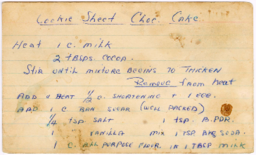 Cookie Sheet Choc. Cake
Heat 1 c. milk
2 tbsps cocoa.
Stir until mixture begins to thicken
Remove from heat
Add + Beat 1/2 c. shortening + 1 egg.
Add 1 c. sugar (well packed)
1/4 tsp salt 1 tsp. B. pdr.
1 vanilla 1 tsp soda
1 c. all purpose flour in 1 tbsp milk